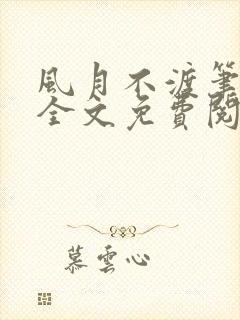 風月不渡筆
全文免費閱
慕雲心